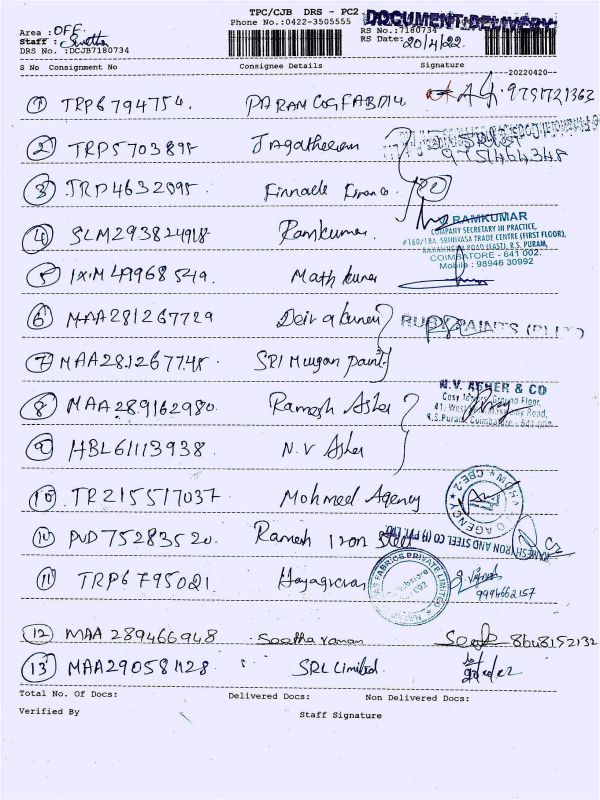 TPC/CJB DRS - PC2 DOCUMENT DELIVERY
Phone No.:0422-3505555
Area : OFF RS No.:7180734
Staff : Swetha RS Date: 20/4/22
DRS No.:DCJB7180734
S No Consignment No Consignee Details Signature
--20220420--
1 TRP6794754. 9751721363
2 TRP5703895 Jagatheesan
9751464348
3 TRP4632095. Finnacle
4 SLM293824918. Ramkumar. RAMKUMAR
COMPANY SECRETARY IN PRACTICE,
#160/18A, SRINIVASA TRADE CENTRE (FIRST FLOOR),
ROAD (EAST), R.S. PURAM,
COIMBATORE - 641 002.
Mobile : 98946 30992
5 Math kumar
6 MAA281267729 Deiva kumar PAINTS
7 MAA281267748. SRI Murugan paints
8 MAA289162980. Ramesh Asher N.V. ASHER & CO
Ground Floor,
41, West Road,
R.S.Puram, Coimbatore - 641 002
9 HBL61113938 N.V Asher
10 TR215517037 Mohmed Agency AGENCY CBE-2
10 PVD75283520. Ramesh Iron Steel RAMESH IRON AND STEEL CO (I) PVT LTD
11 TRP6795021. Hayagrivas FABRICS PRIVATE LIMITED
9994662157
12 MAA 289466948 Seetha raman 8648152132
13 MAA290581128 SRL Limited.
Total No. Of Docs: Delivered Docs: Non Delivered Docs:
Verified By Staff Signature